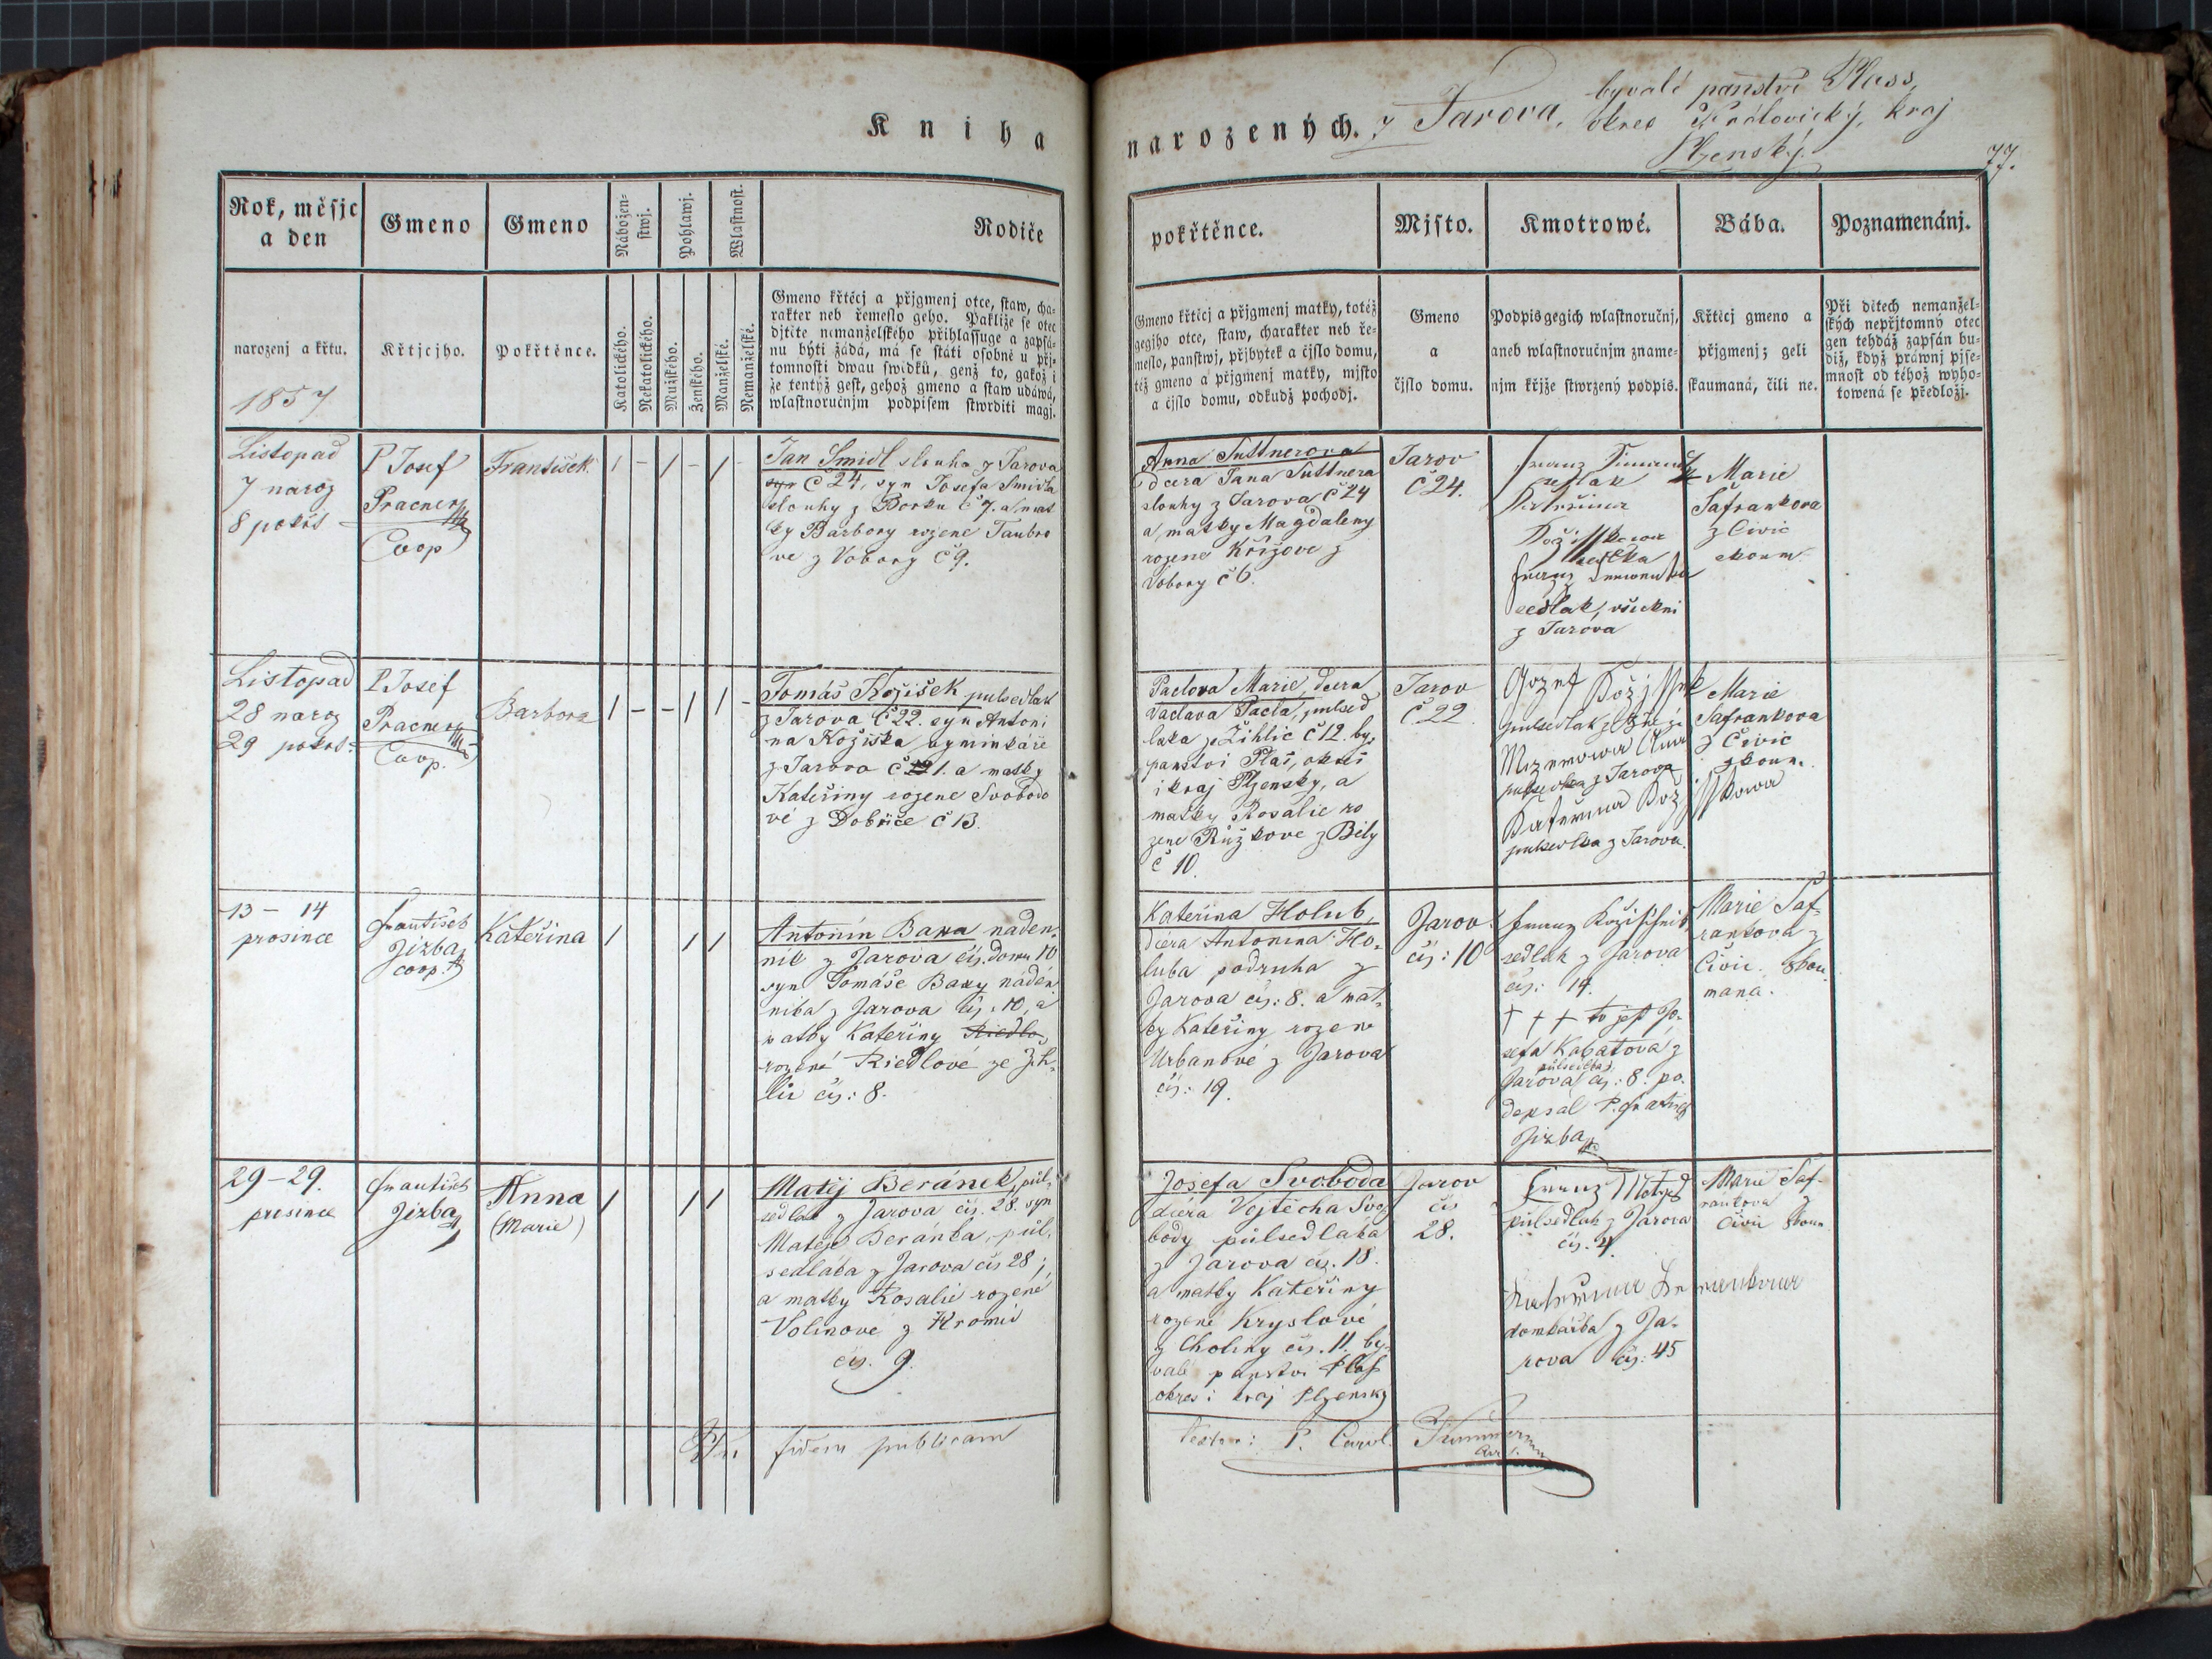 Kniha
narozených. z Jarova, bywalé panstvi Plass,
okres Královický, kraj
Plzenský.
77.
Rok, měsjc
a den
Gmeno
Gmeno
Nábožen-
stwj.
Pohlawj.
Wlastnost.
Rodiče
pokřtěnce.
Mjsto.
Kmotrowé.
Bába.
Poznamenánj.
narozenj a křtu.
1857
Křtjcjho.
Pokřtěnce.
Katolického.
Nekatolického.
Mužského.
Ženského.
Manželské.
Nemanželské.
Gmeno křtěcj a přjgmenj otce, staw, cha-
rakter neb řemeslo geho. Pakliže se otec
djtěte nemanželského přihlassuge a zapsá-
nu býti žádá, má se státi osobně u přj-
tomnosti dwau swidků, genž to, gakož i
že tentýž gest, gehož gmeno a staw udáwá,
wlastnoručnjm podpisem stwrditi magj.
Gmeno křticj a přjgmenj matky, totéž
gegjho otce, staw, charakter neb ře-
meslo, panstwj, přjbytek a čjslo domu,
též gmeno a přjgmenj matky, mjsto
a čjslo domu, odkudž pochodj.
Gmeno
a
čjslo domu.
Podpis gegich wlastnoručnj,
aneb wlastnoručnjm zname-
njm křjže stwrzený podpis.
Křticj gmeno a
přjgmenj; geli
skaumaná, čili ne.
Při dětech nemanžel-
ských nepřjtomný otec
gen tehdáž zapsán bu-
diž, když práwnj pjse-
mnost od téhož wyho-
towená se předložj.
Listopad
7 naroz
8 pokřt
P Josef
Pracner
Coop
František
1 - 1 - 1 -
Jan Smidl slouha z Jarova
syn č 24, syn Josefa Smidla
slouhy z Borku č 7. a mat
ky Barbory rozene Taubro
ve z Vobory č 9.
Anna Suttnerova
dcera Jana Suttnera
slouhy z Jarova č 24
a matky Magdaleny
rozene Křižove z
Vobory č 6.
Jarov
č 24.
Franz
sedlak
Franz
sedlak, všickni
z Jarova
Marie
Šafrankova
z Čivic
skoum.
Listopad
28 naroz
29 pokřt.
P Josef
Pracner
Coop.
Barbora
1 - - 1 1 -
Tomáš Kožišek pulsedlak
z Jarova č 22. syn Antoni
na Kožiška vyminkáře
z Jarova č 21. a matky
Kateřiny rozene Svobodo
vé z Dobřice č 13.
Paclova Marie, dcera
Vaclava Pacla, pulsed
laka z Žihlic č 12. by.
panstvi Plas, okres
i kraj Plzensky, a
matky Rosalie ro
zene Růžkove z Bily
č 10.
Jarov
č 22
Jozef Kožjssek
pulsedlak z
pulsedlka z Jarova
Kateřina Kožjsskowa
pulsedlka z Jarova.
Marie
Safrankova
z Čivic
skoum.
13 – 14
prosince
František
Jizba
coop.
Kateřina
1 1 1
Antonín Baxa náden-
nik z Jarova čis. domu 10
syn Tomáše Baxy náden
nika z Jarova čis: 10, a
matky Kateřiny Riedlo
rozené Riedlové ze Žih-
lic čis: 8.
Kateřina Holub,
dcera Antonina Ho-
luba podruha z
Jarova čis: 8. a mat-
ky Kateřiny rozene
Urbanové z Jarova
čis: 19.
Jarov
čis: 10
Franz
sedlak z Jarova
čis: 14.
† † † to jest Jo-
sefa Kabatová z
půlsedlka
Jarova čis: 8. po-
depsal P. František
Jizba
Marie Šaf-
rankova z
Čivic. skou
mana.
29 – 29.
prosince
František
Jizba
Anna
(Marie)
1 1 1
Matěj Beránek, půl-
sedlak z Jarova čis. 28. syn
Matěje Beránka, půl-
sedláka z Jarova čis 28;
a matky Rosalie rozené
Volinové z Hromic
čis. 9.
Josefa Svoboda
dcera Vojtěcha Svo-
body půlsedlaka
z Jarova čis. 18.
a matky Kateřiny
rozené Kryslové
z Choliny čis. 11. bý-
valé panstvi Plass
okres i kraj Plzensky
Jarov
čis
28.
Franz
půlsedlak z Jarova
čis. 4.
domkařka z Ja-
rova čis: 45
Marie Saf-
rankova z
Čivic skoum
fidem publicam
testor: P. Carol.